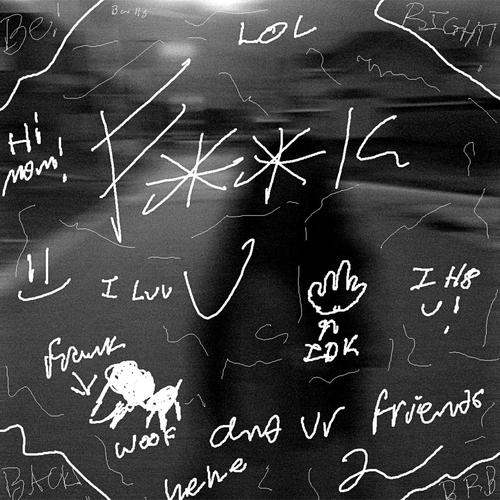 Be!
Ben H8
LOL
RIGHT!
Hi
mom!
F**K
I Luv
U
I H8
U!
IDK
frank
woof
and ur friends
2
hehe
BACK
BRB